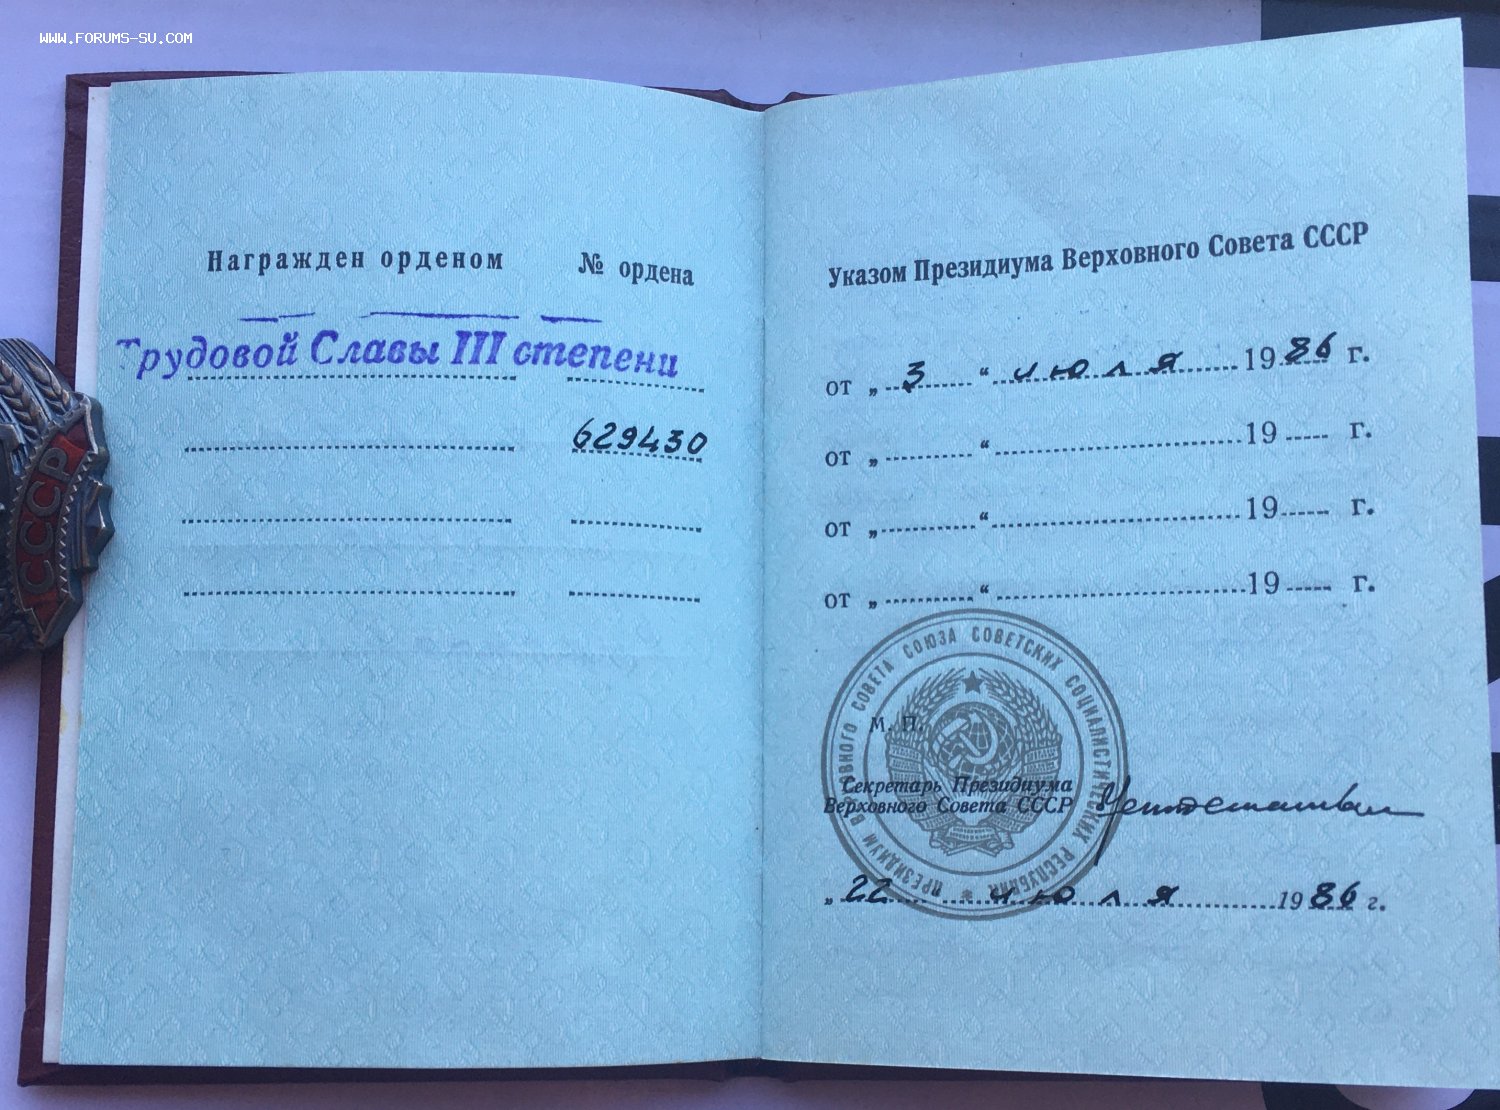 WWW.FORUMS-SU.COM
Награжден орденом № ордена
Трудовой Славы III степени
629430
СССР
Указом Президиума Верховного Совета СССР
от „ 3 “ июля 1986 г.
от „ “ 19 г.
от „ “ 19 г.
от „ “ 19 г.
ПРЕЗИДИУМ ВЕРХОВНОГО СОВЕТА СОЮЗА СОВЕТСКИХ СОЦИАЛИСТИЧЕСКИХ РЕСПУБЛИК
М. П.
Секретарь Президиума
Верховного Совета СССР
„ 22 июля 1986 г.